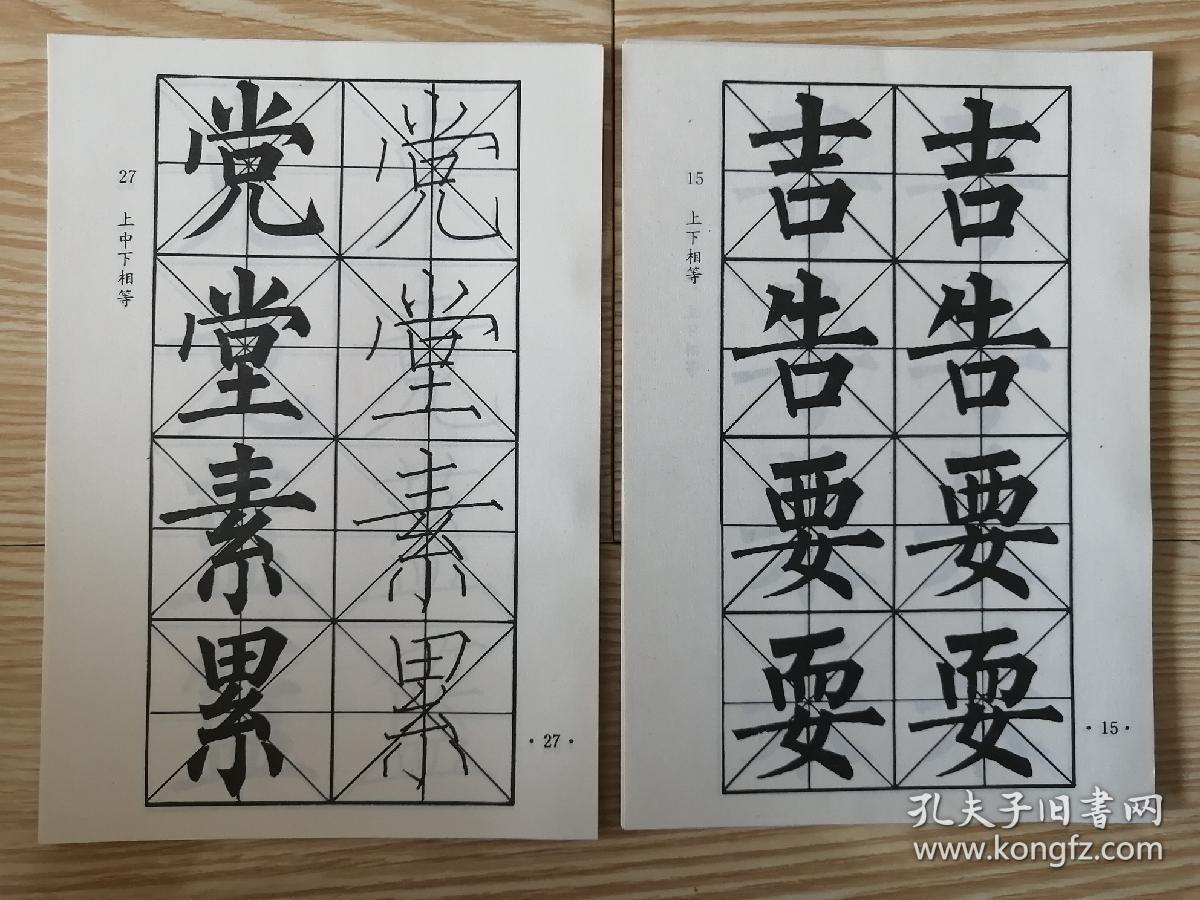 27 上中下相等
党 党
堂 堂
素 素
累 累
·27·
15 上下相等
吉 吉
告 告
要 要
耍 耍
·15·
孔夫子旧書网
www.kongfz.com